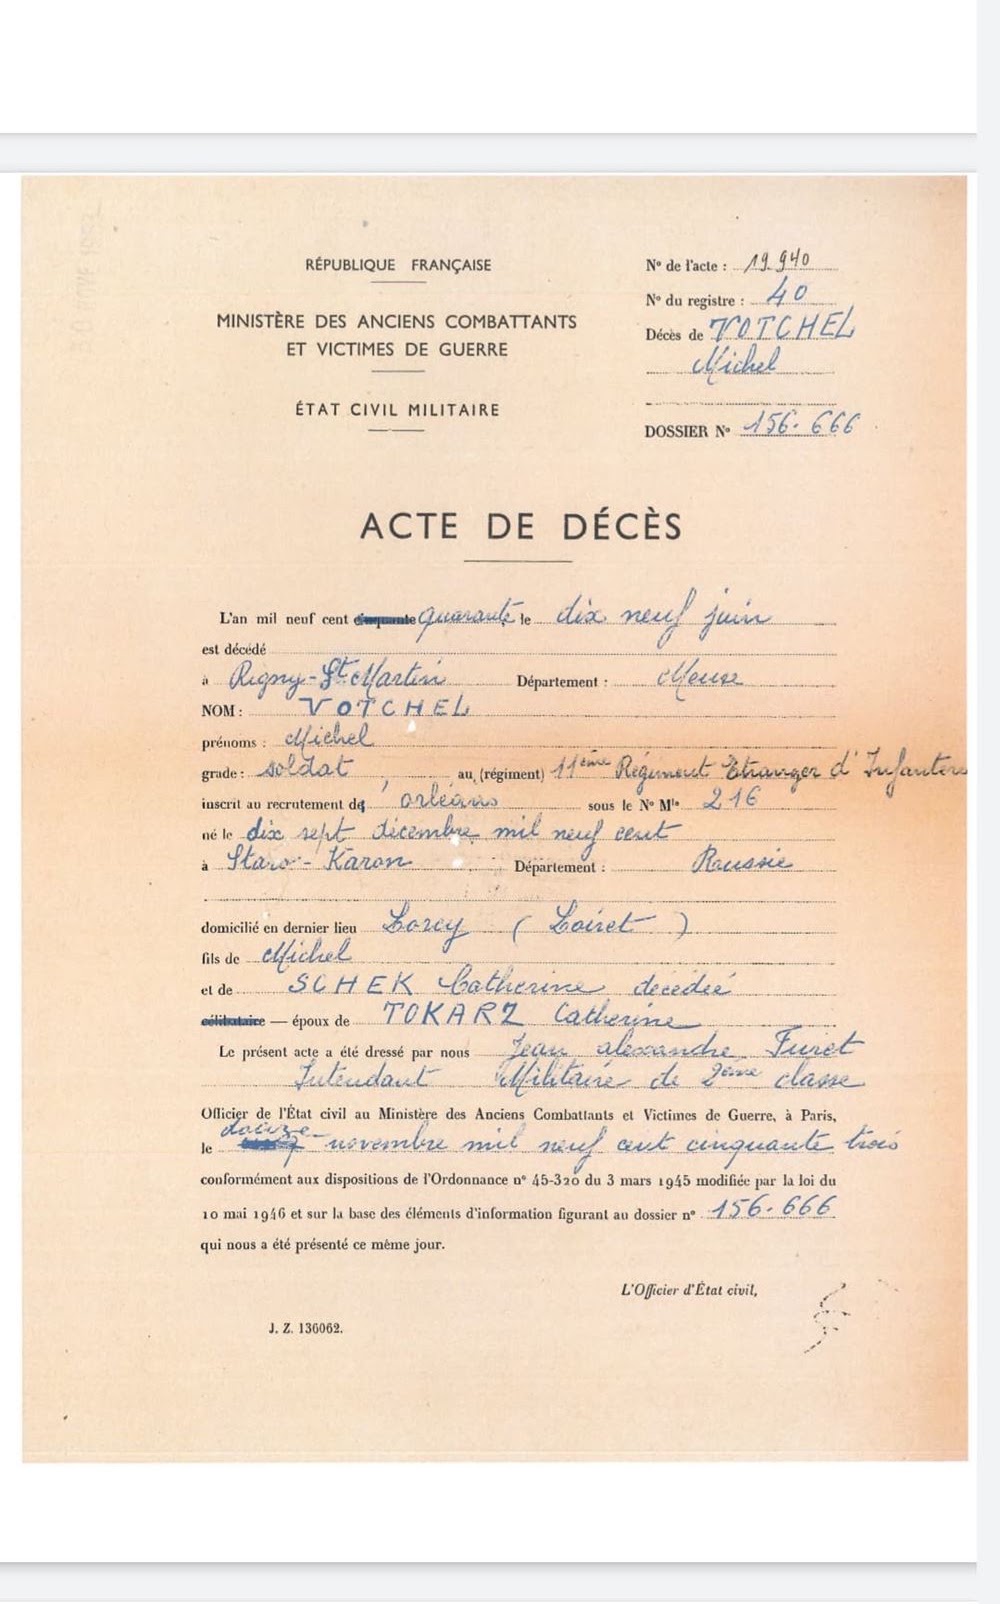 RÉPUBLIQUE FRANÇAISE
MINISTÈRE DES ANCIENS COMBATTANTS
ET VICTIMES DE GUERRE
ÉTAT CIVIL MILITAIRE
N° de l'acte : 19 940
N° du registre : 40
Décès de VOTCHEL
Michel
DOSSIER N° 156.666
ACTE DE DÉCÈS
L'an mil neuf cent cinquante quarante le dix neuf juin
est décédé
à Rigny-St Martin Département : Meuse
NOM : VOTCHEL
prénoms : Michel
grade : soldat au (régiment) 11ème Régiment Etranger d'Infanterie
inscrit au recrutement d' orléans sous le N° Mle 216
né le dix sept décembre mil neuf cent
à Staro-Karon Département : Russie
domicilié en dernier lieu Lorcy (Loiret)
fils de Michel
et de SCHEK Catherine décédée
célibataire — époux de TOKARZ Catherine
Le présent acte a été dressé par nous Jean alexandre Furet
Intendant Militaire de 2ème classe
Officier de l'État civil au Ministère des Anciens Combattants et Victimes de Guerre, à Paris,
le douze novembre mil neuf cent cinquante trois
conformément aux dispositions de l'Ordonnance n° 45-320 du 3 mars 1945 modifiée par la loi du
10 mai 1946 et sur la base des éléments d'information figurant au dossier n° 156.666
qui nous a été présenté ce même jour.
L'Officier d'État civil,
J. Z. 136062.